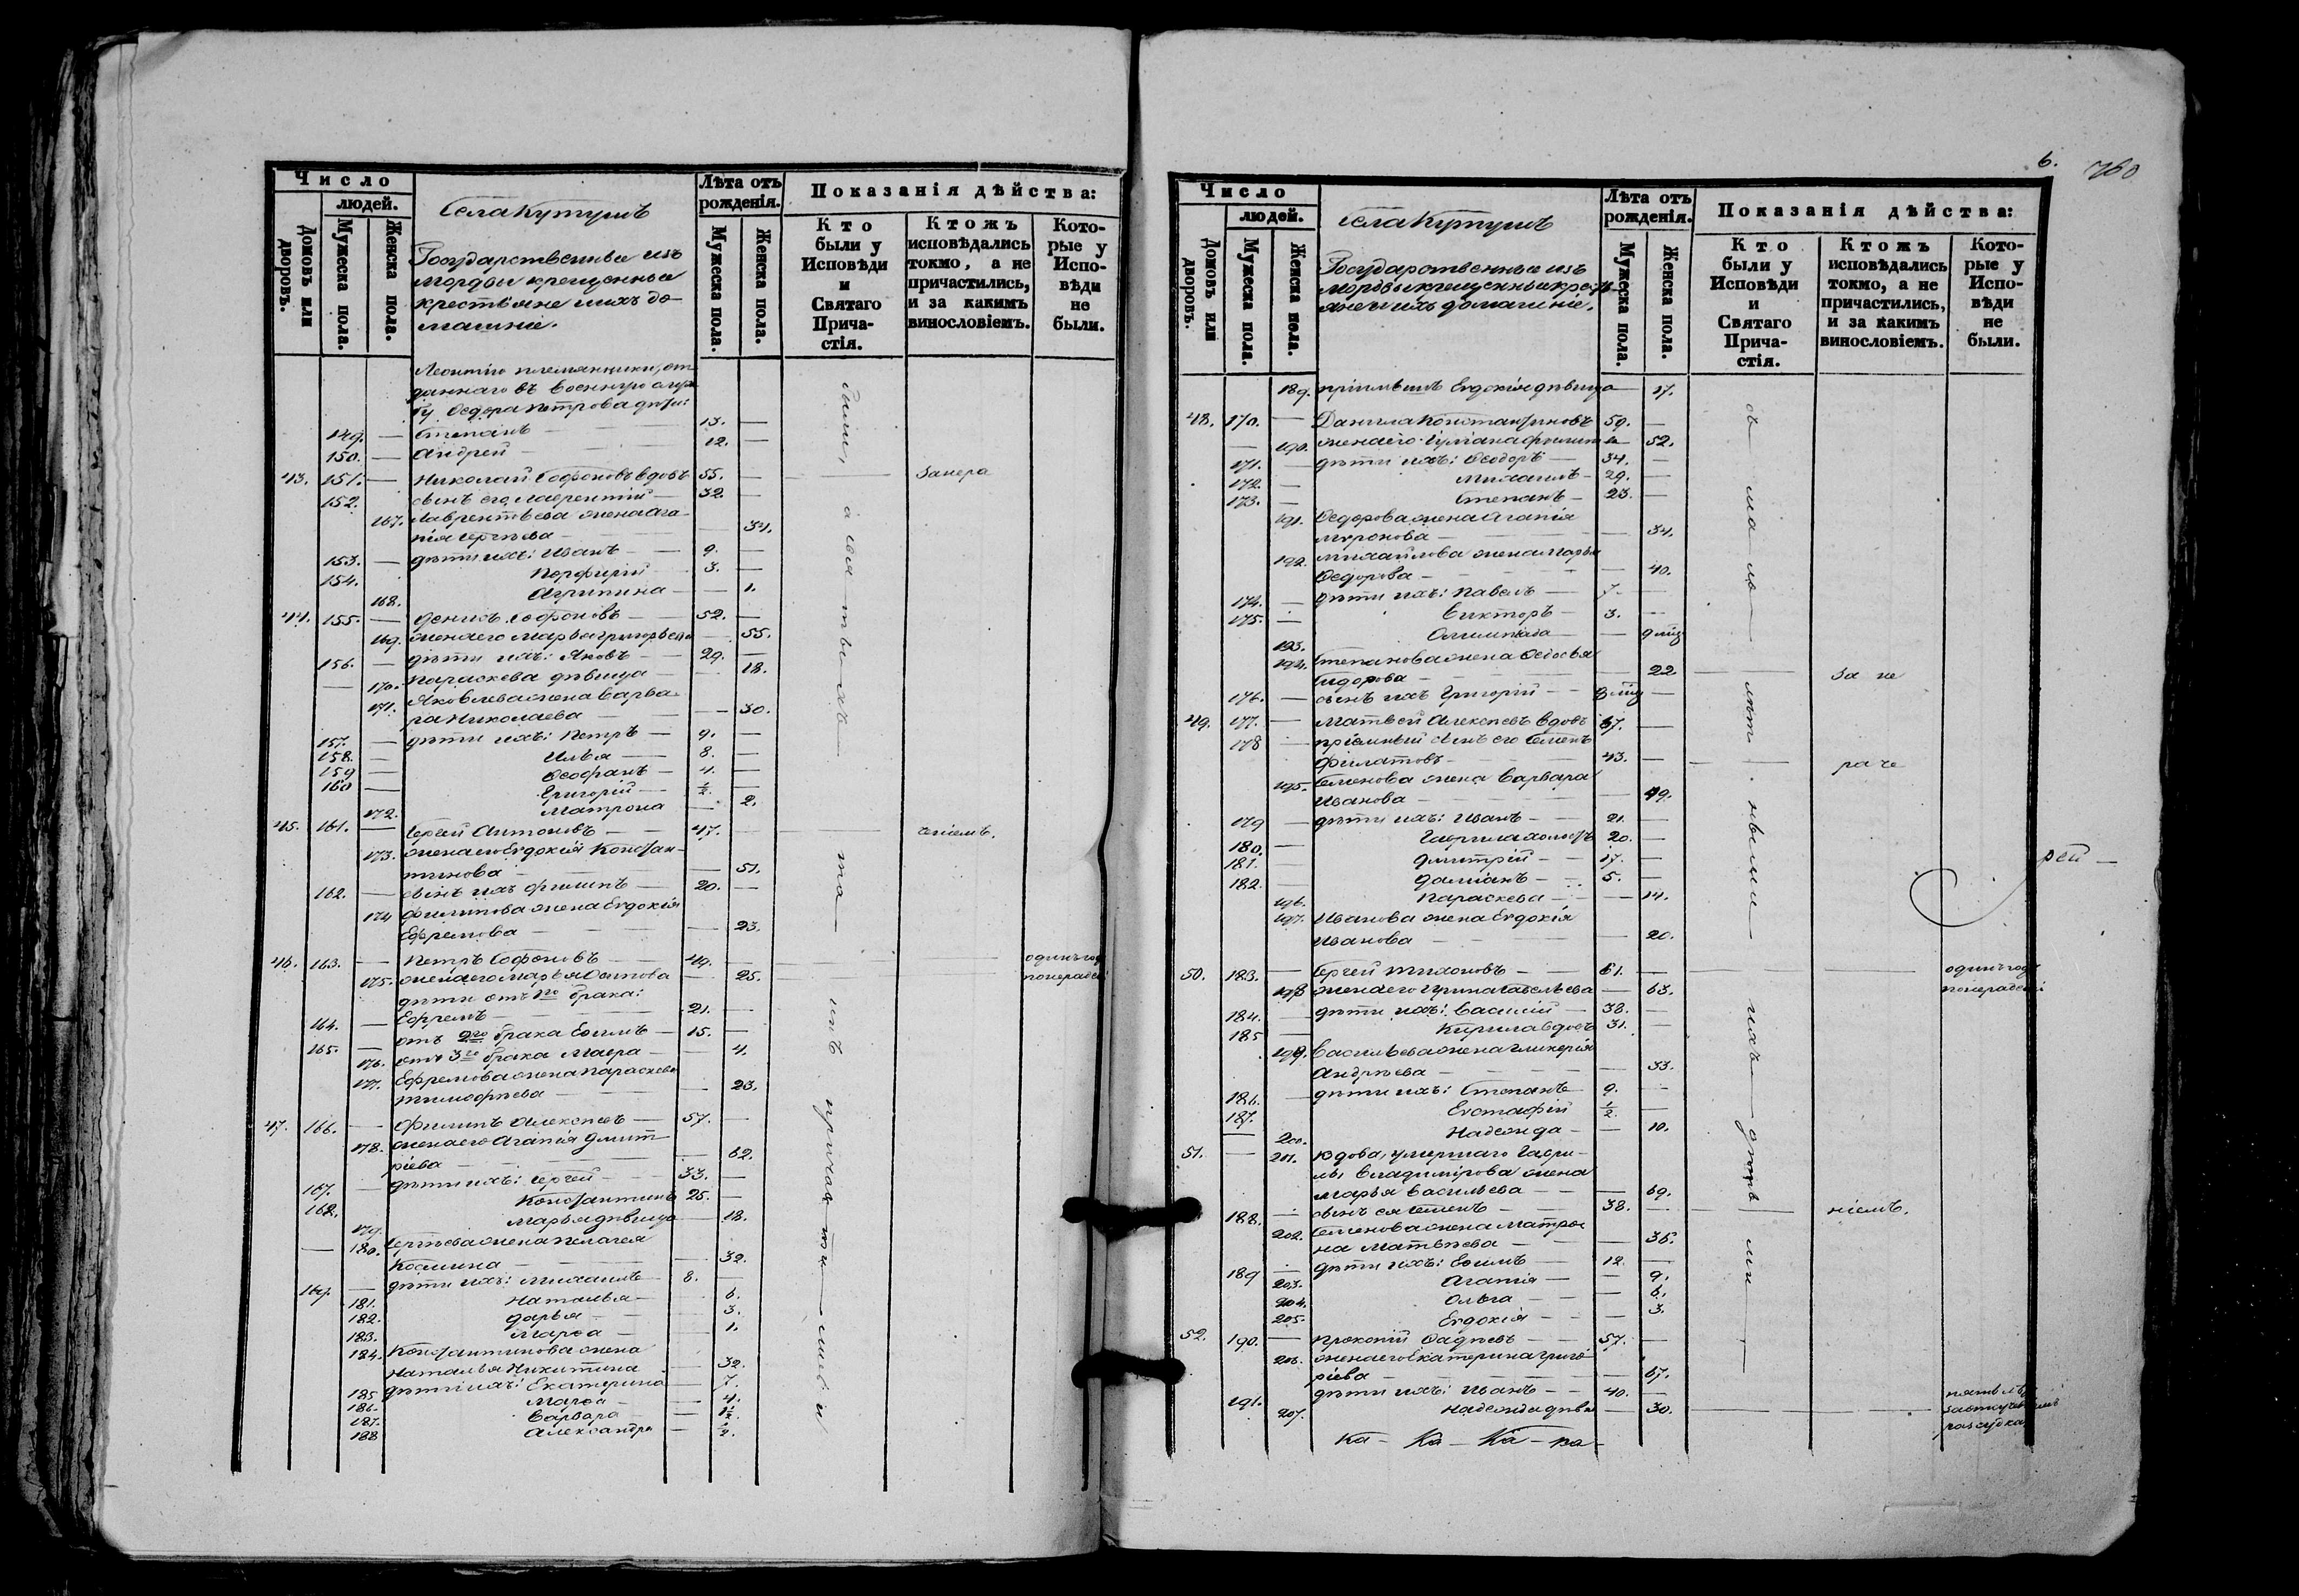 Число
людей.
Домовъ или дворовъ.
Мужеска пола.
Женска пола.
Села Кутушъ
Государственные изъ
мордвы крещенные
крестьяне и ихъ до-
машніе.
Лѣта отъ
рожденія.
Мужеска пола.
Женска пола.
Показанія дѣйства:
Кто
были у
Исповѣди
и
Святаго
Прича-
стія.
Ктожъ
исповѣдались
токмо, а не
причастились,
и за какимъ
винословіемъ.
Кото-
рые у
Испо-
вѣди
не
были.
Леонтія племянники, от
даннаго въ военную служ
бу Ѳедора Петрова дѣти:
149. — Степанъ — 13. —
150. — Андрей — 12. —
43. 151. — Николай Софоновъ вдовъ 55. —
152. сынъ его Лаврентій — 32. —
167. Лаврентьева жена Ага-
пія Сергѣева — 34.
153. — дѣти ихъ: Иванъ — 9. —
154. Порфирій 3. —
168. Агрипина — 1.
44. 155. — Денисъ Софоновъ — 52. —
169. жена его Марья Григорьева — 55.
156. — дѣти ихъ: Яковъ — 29. —
— 170. Параскева дѣвица — 18.
171. Яковлева жена Варва-
ра Николаева — 30.
157. — дѣти ихъ: Петръ — 9. —
158. — Илья — 8. —
159 — Ѳеофанъ — 4. —
160 — Григорій — ½. —
172. Матрона — 2.
45. 161. — Сергей Антоновъ — 47. —
173. жена его Евдокія Констан-
тинова — 51.
162. — сынъ ихъ Филипъ — 20. —
174 Филипова жена Евдокія
Ефремова — 23.
46. 163. — Петръ Софоновъ — 49. —
одинъ годъ
175. жена его Марья Осипова — 25.
дѣти отъ 1го брака:
164. — Ефремъ — 21. —
165. — отъ 2го брака Ефимъ — 15. —
176. отъ 3го брака Мавра — 4.
177. Ефремова жена Параскева
Тимофѣева — 23.
47. 166. — Филипъ Алексѣевъ — 57. —
178. жена его Агапія Дмит
ріева — 62.
167. — дѣти ихъ: Сергей — 33. —
168. Константинъ 25. —
179. Марья дѣвица — 18.
— 180. Сергѣева жена Пелагея
Козмина — 32.
169. — дѣти ихъ: Михаилъ 8. —
181. Наталья — 6.
182. Дарья — 3.
183. Марѳа — 1.
184. Константинова жена
Наталья Никитина — 32.
185 дѣти ихъ: Екатерина — 7.
186. Марѳа — 4.
187. Варвара — 1½.
188 Александра — ½.
6.
760
Число
людей.
Домовъ или дворовъ.
Мужеска пола.
Женска пола.
Села Кутушъ
Государственные изъ
мордвы крещенные кресть-
яне и ихъ домашніе.
Лѣта отъ
рожденія.
Мужеска пола.
Женска пола.
Показанія дѣйства:
Кто
были у
Исповѣди
и
Святаго
Прича-
стія.
Ктожъ
исповѣдались
токмо, а не
причастились,
и за какимъ
винословіемъ.
Кото-
рые у
Испо-
вѣди
не
были.
189. Евдокія дѣвица — 17.
48. 170. — Данила Константиновъ 59. —
— 190. жена его Іуліана Филип 52.
171. — дѣти ихъ: Ѳеодоръ — 34. —
172. — Михаилъ — 29. —
173. — Степанъ — 23. —
191. Ѳедорова жена Агапія
Миронова — 34.
192. Михайлова жена Марья
Ѳедорова — 40.
174. — дѣти ихъ: Павелъ — 7. —
175. — Викторъ — 3. —
193. Олимпіада —
194. Степанова жена Ѳедосья
Сидорова — 22
176. — сынъ ихъ Григорій —
49. 177. — Матвей Алексѣевъ вдовъ 67. —
178 — пріемный сынъ его Семенъ
Филатовъ — 43. —
195. Семенова жена Варвара
Иванова — 49.
179 — дѣти ихъ: Иванъ — 21. —
180. — Гаврила холостъ 20. —
181. — Дмитрій — 17. —
182. — Даміанъ — 5. —
196. Параскева — 14.
197. Иванова жена Евдокія
Иванова — 20.
50. 183. — Сергей Тихоновъ — 61. —
одинъ годъ
198 жена его Ирина Савельева — 63.
184. — дѣти ихъ: Василій — 38. —
185 — Кирила вдовъ 31. —
199. Васильева жена Гликерія
Андрѣева — 33.
186. — дѣти ихъ: Степанъ 9. —
187. Евстафій ½. —
— 200. Надежда — 10.
51. — 201. Вдова, умершаго Гаври-
лы Владимірова жена
Марья Васильева — 69.
188. — сынъ ея Семенъ — 38. —
202. Семенова жена Матро
на Матвѣева — 36.
189 — дѣти ихъ: Ефимъ — 12. —
203. Агапія — 9.
204. Ольга — 6.
205. Евдокія — 3.
52. 190. — Прокопій Фадѣевъ — 57. —
206. жена его Екатерина Григо
рьева — 67.
191. дѣти ихъ: Иванъ — 40. —
207. Надежда дѣвица — 30.
ка — Ка — Ка — ка —